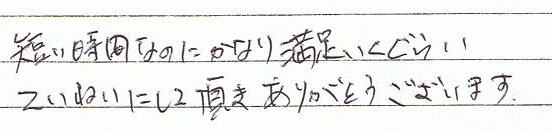 短い時間なのにかなり満足いくぐらい
ていねいにして頂きありがとうございます.